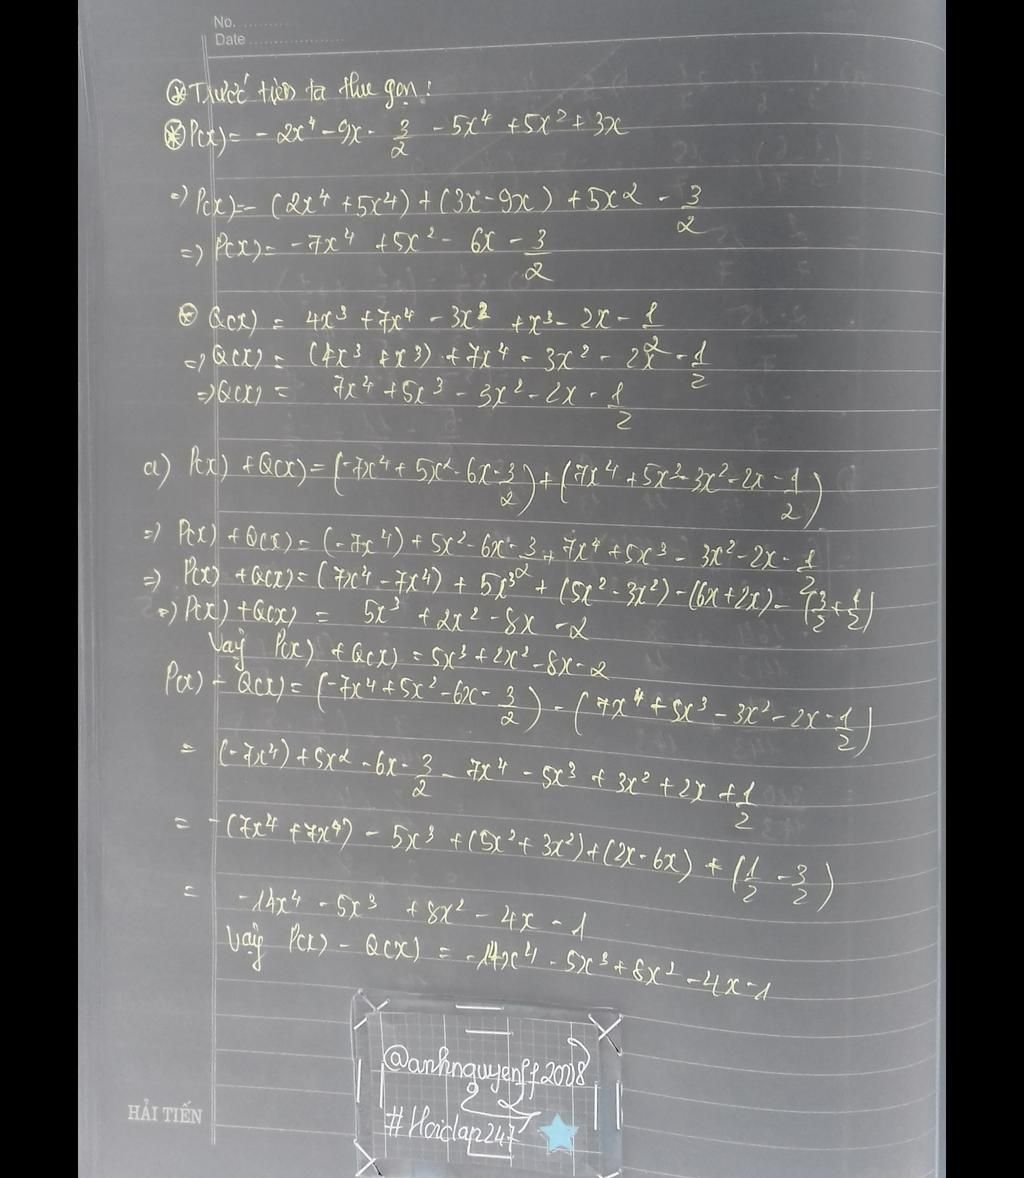 No. ..........
Date ....................
* Trước tiên ta thu gọn:
* P(x) = - 2x⁴ - 9x - 3/2 - 5x⁴ + 5x² + 3x
=> P(x) = - (2x⁴ + 5x⁴) + (3x - 9x) + 5x2 - 3/2
=> P(x) = -7x⁴ + 5x² - 6x - 3/2
* Q(x) = 4x³ + 7x⁴ - 3x² + x³ - 2x - 1/2
=> Q(x) = (4x³ + x³) + 7x⁴ - 3x² - 2x - 1/2
=> Q(x) = 7x⁴ + 5x³ - 3x² - 2x - 1/2
a) P(x) + Q(x) = (-7x⁴ + 5x² - 6x - 3/2) + (7x⁴ + 5x³ - 3x² - 2x - 1/2)
=> P(x) + Q(x) = (-7x⁴) + 5x² - 6x - 3/2 + 7x⁴ + 5x³ - 3x² - 2x - 1/2
=> P(x) + Q(x) = (7x⁴ - 7x⁴) + 5x³ + (5x² - 3x²) - (6x + 2x) - (3/2 + 1/2)
=> P(x) + Q(x) = 5x³ + 2x² - 8x - 2
Vậy P(x) + Q(x) = 5x³ + 2x² - 8x - 2
P(x) - Q(x) = (-7x⁴ + 5x² - 6x - 3/2) - (7x⁴ + 5x³ - 3x² - 2x - 1/2)
= (-7x⁴) + 5x2 - 6x - 3/2 - 7x⁴ - 5x³ + 3x² + 2x + 1/2
= -(7x⁴ + 7x⁴) - 5x³ + (5x² + 3x²) + (2x - 6x) + (1/2 - 3/2)
= -14x⁴ - 5x³ + 8x² - 4x - 1
Vậy P(x) - Q(x) = -14x⁴ - 5x³ + 8x² - 4x - 1
@anhnguyenff2008
#Hoidap247
HẢI TIẾN